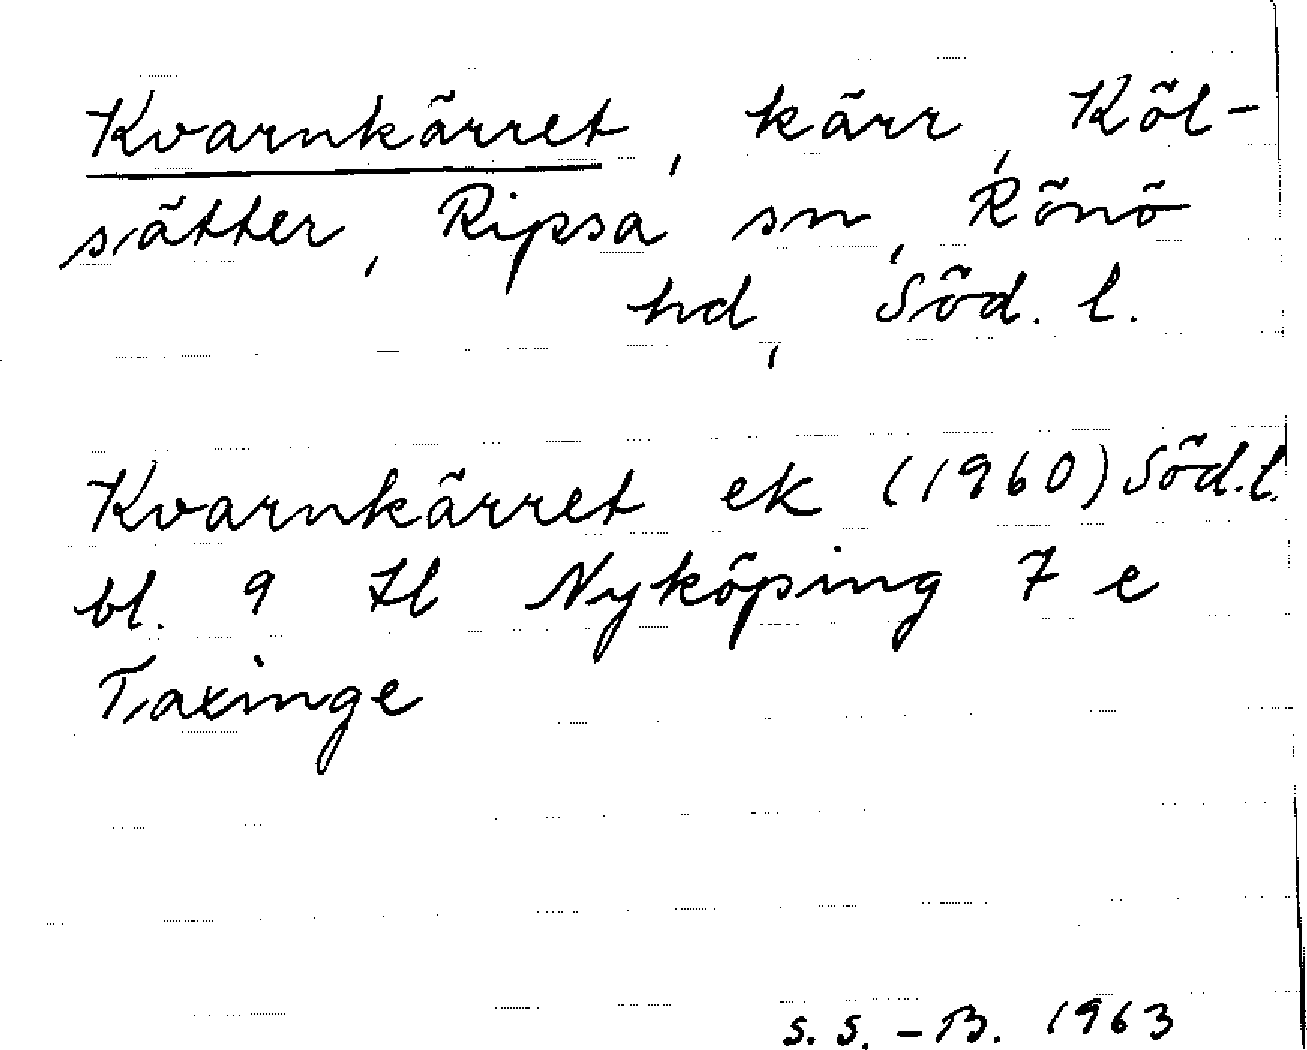 Kvarnkärret, kärr, Köl-
sätter, Ripsa sn, Rönö
hd, Söd. l.
Kvarnkärret ek (1960) Söd.l.
bl. 9 Il Nyköping 7 e
Taxinge
S. S. - B. 1963